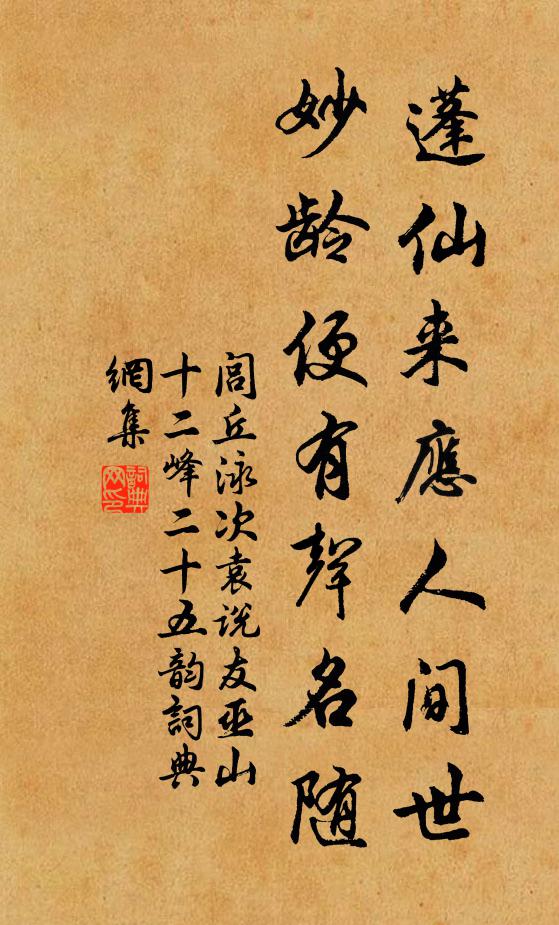 蓬仙来應人间世
妙龄便有聲名随
闾丘泳次袁说友巫山
十二峰二十五韵词典
網集
詞典網印